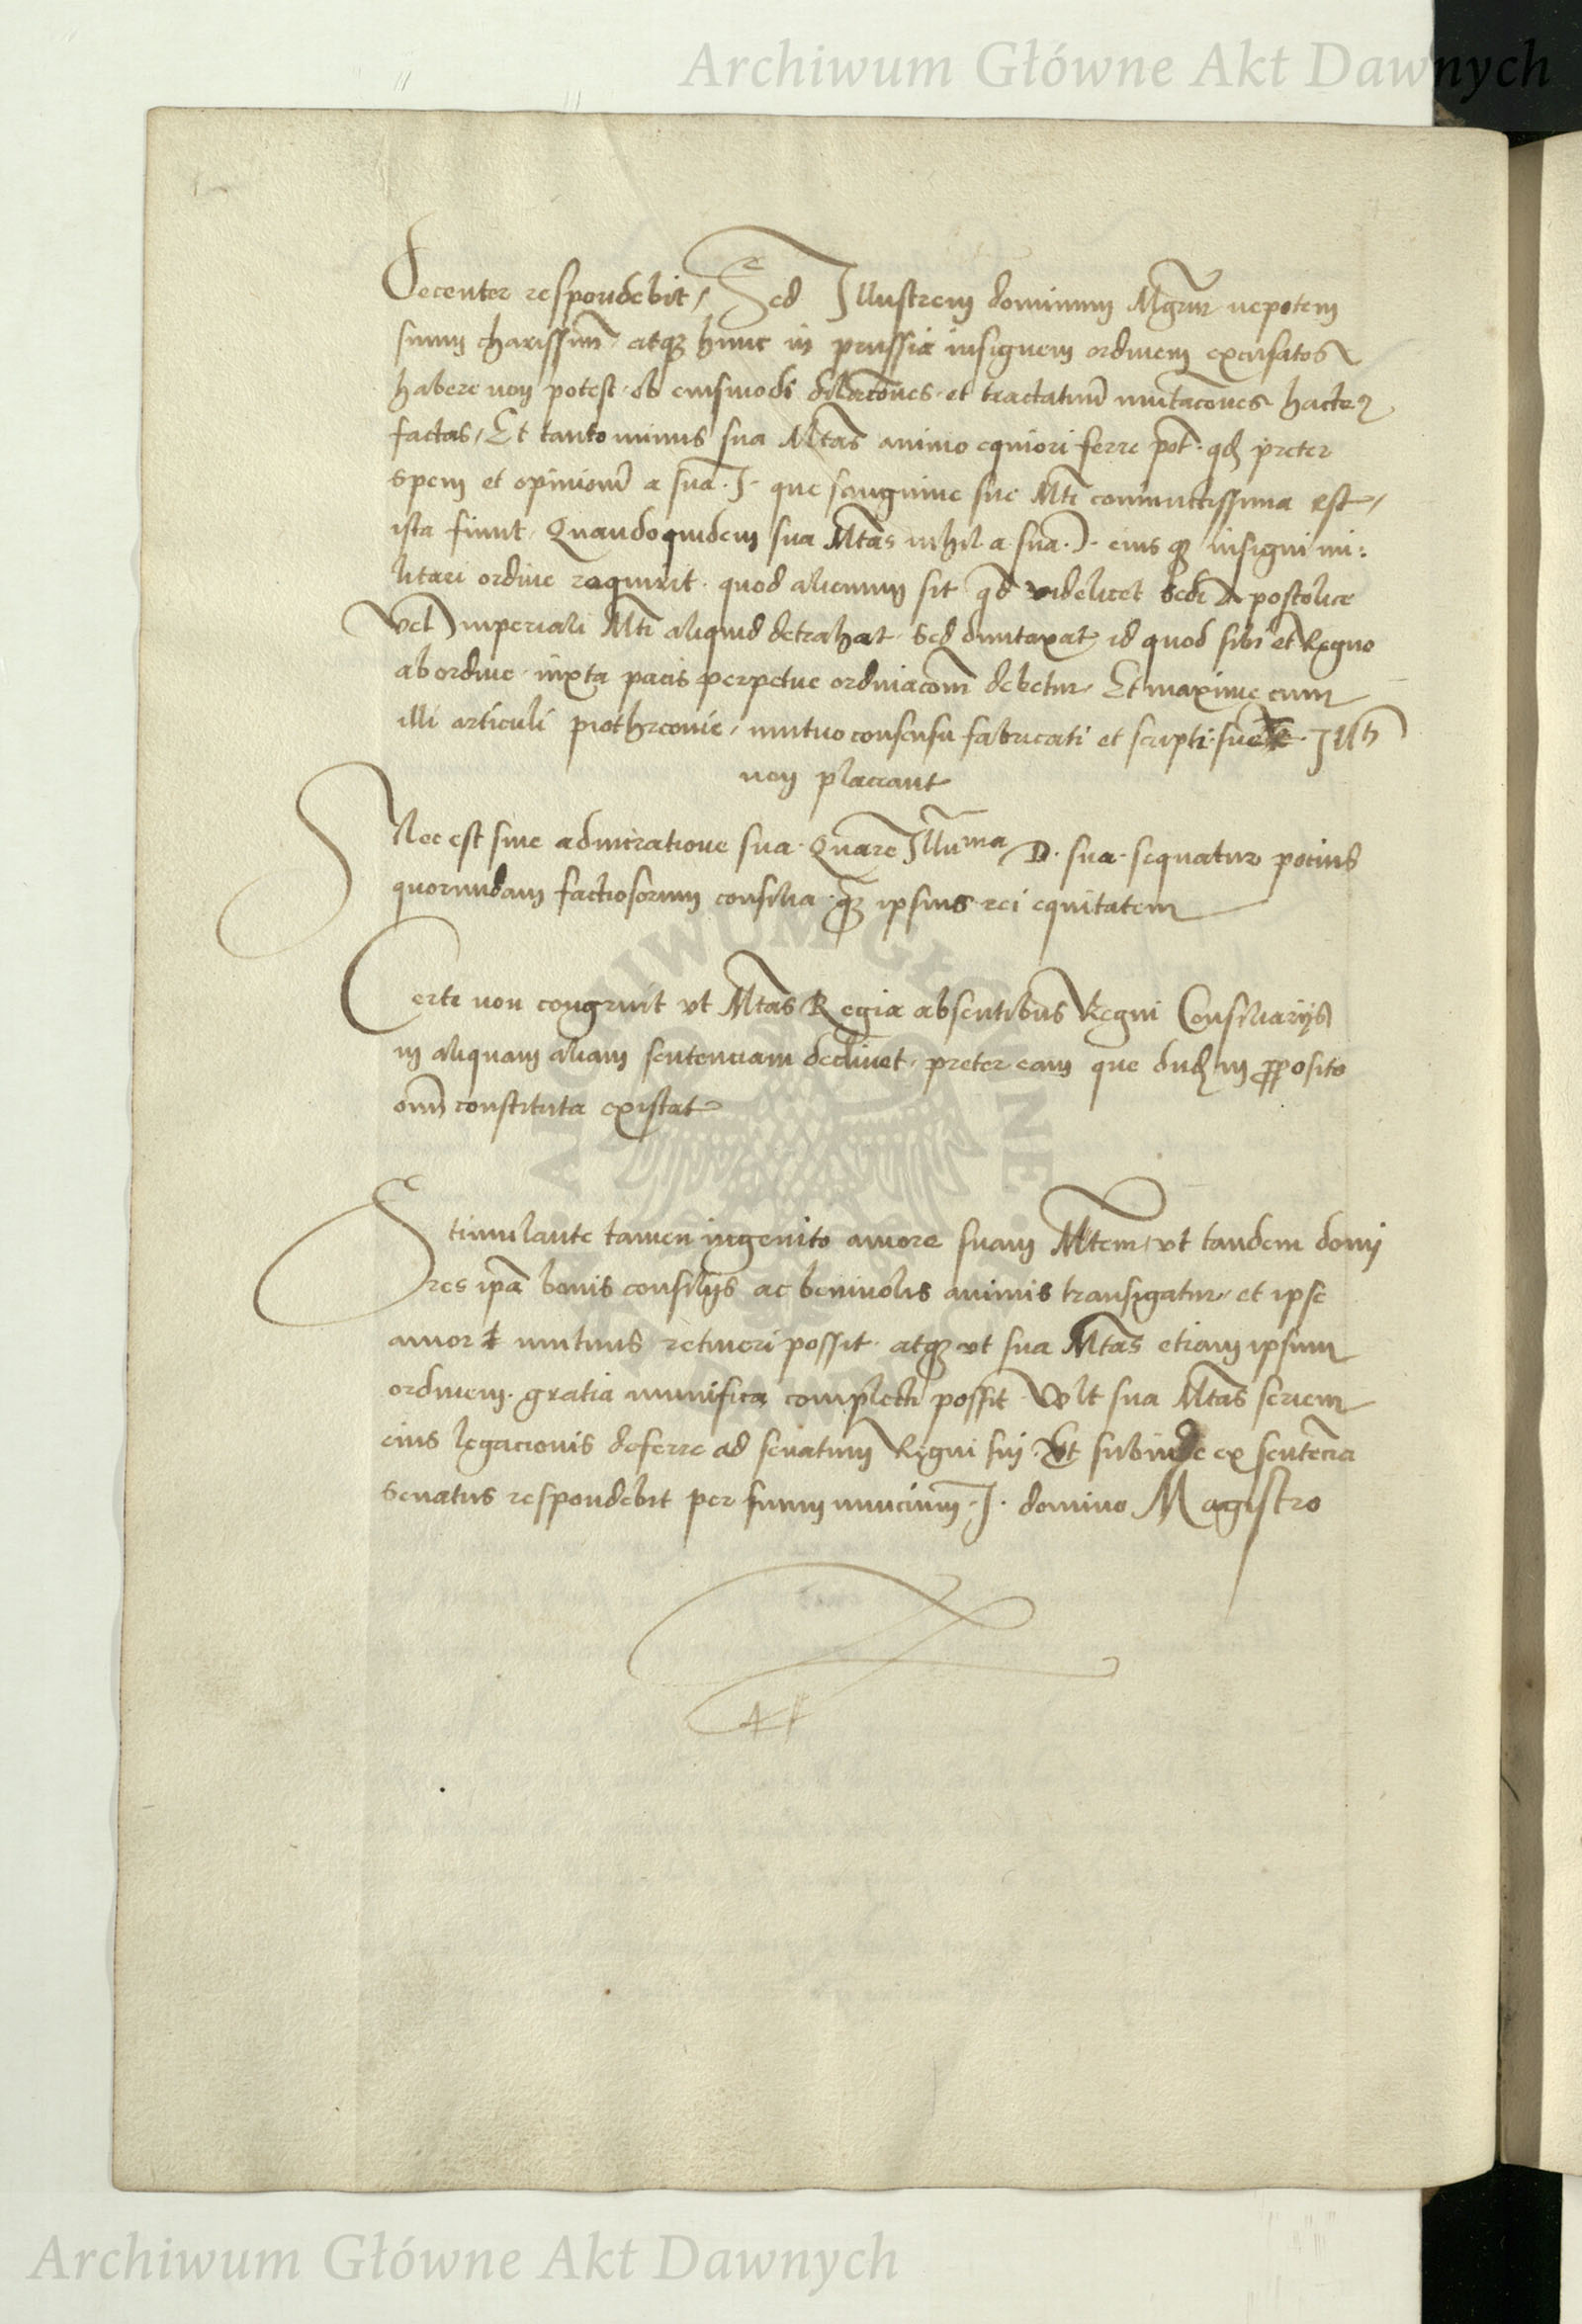 Archiwum Główne Akt Dawnych
Decenter respondebit / Sed Illustrem dominum Mgrm nepotem
suum charissimū atqȝ hunc in prussia insignem ordinem excusatos
habere non potest ob eiusmodi dilacōnes et tractatuū mutacōnes hacteꝫ
factas / Et tanto minus sua Mtas animo equiori ferre pōt qđ preter
spem et opinionē a sua .I. que sanguine sue Mti coniunctissima est /
ista fiunt Quandoquidem sua Mtas nihil a sua .I. eius qȝ insigni mi:
litari ordine requirit quod alienum sit qđ videlicet Sedi Apostolice
vel Imperiali Mti aliquid detrahat Sed duntaxat id quod sibi et Regno
ab ordine iuxta pacis perpetue ordinacōem debetur Et maxime cum
illi articuli piothrconie / mutuo consensu fabricati et scripti sue Ill
non placeant
Nec est sine admiratione sua Quare Illuma D. sua sequatur pocius
quorundam factiosorum consilia qȝ ipsius rei equitatem
Certe non congruit vt Mtas Regia absentibus Regni Consiliariis
in aliquam aliam sentenciam declinet preter eam que dudū in proposito
omn constituta existat
Stimulante tamen ingenito amore suam Mtem vt tandem domi
res ipā bonis consiliis ac benivolis animis transigatur et ipse
amor mutuus retineri possit atqȝ vt sua Mtas etiam ipsum
ordinem gratia munifica complecti possit Vult sua Mtas seriem
eius legacionis deferre ad senatum Regni sui Et subinde ex sentēcia
Senatus respondebit per suum nuncium .I. domino Magistro
Archiwum Główne Akt Dawnych